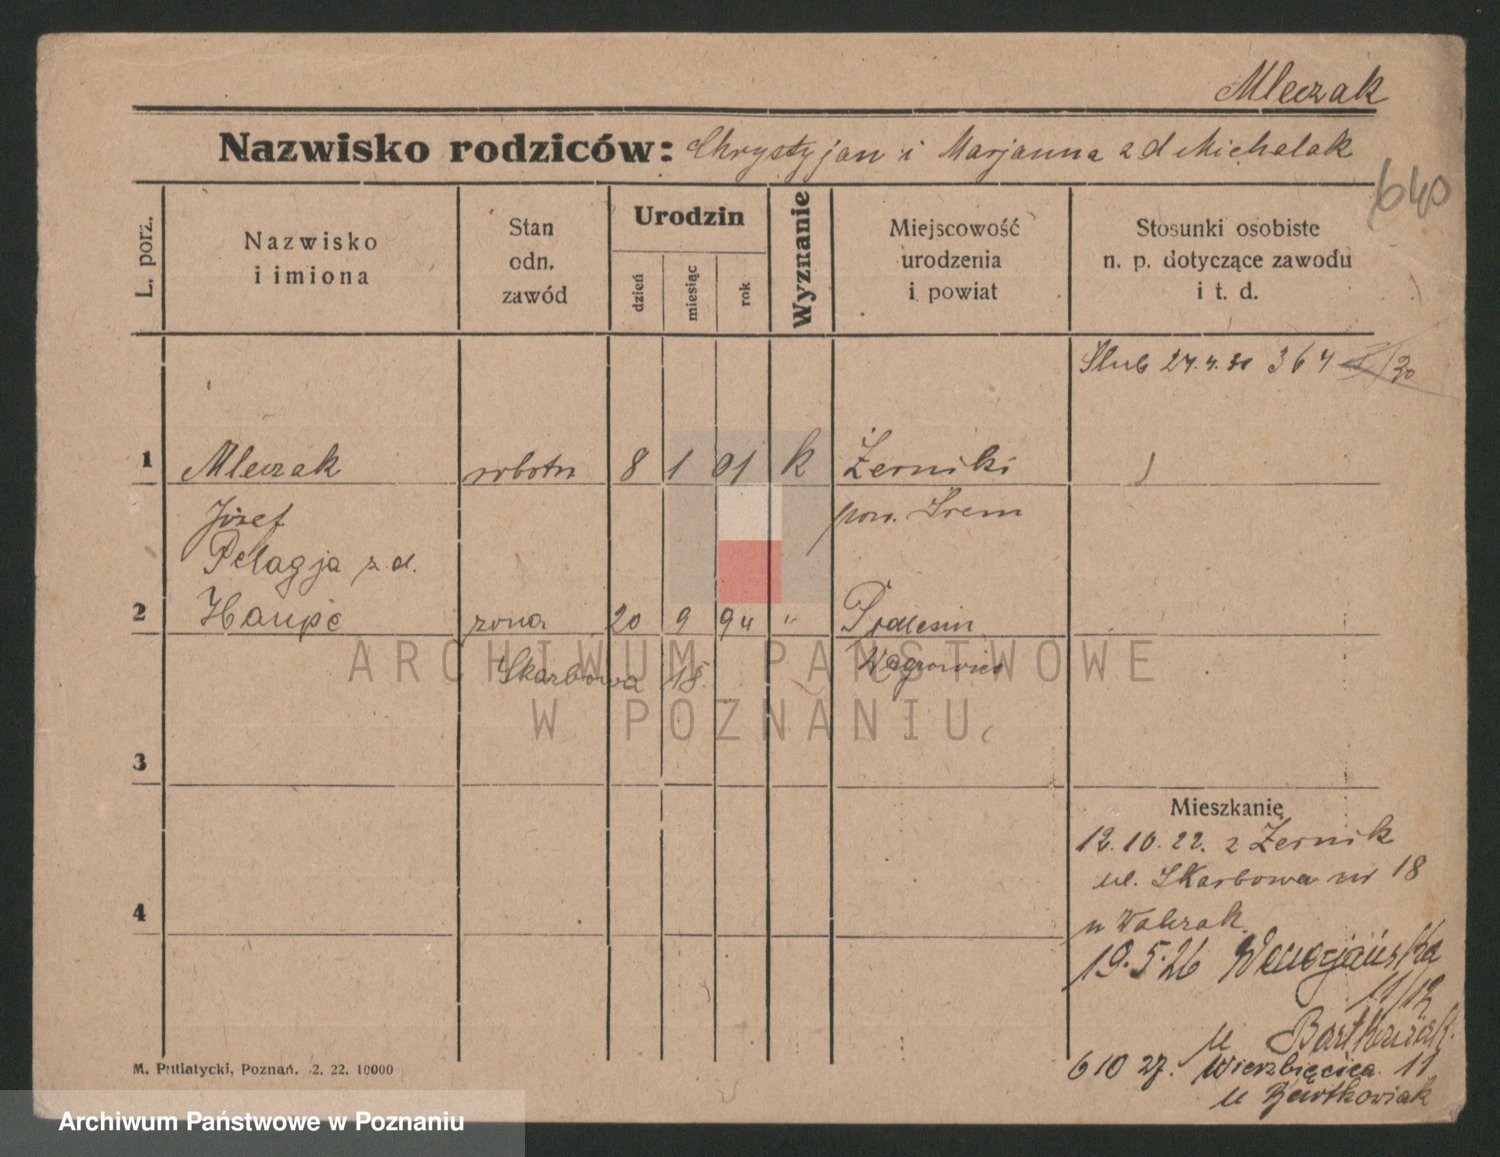 Mleczak
Nazwisko rodziców: Chrystyjan i Marjanna z d Michalak
640
L. porz.
Nazwisko
i imiona
Stan
odn.
zawód
Urodzin
dzień
miesiąc
rok
Wyznanie
Miejscowość
urodzenia
i powiat
Stosunki osobiste
n. p. dotyczące zawodu
i t. d.
Ślub 27.4.30 364 /30
1 Mleczak robotn 8 1 01 k Żerniki
Józef pow. Śrem
Pelagja z d.
2 Haupe żona 20 9 94 "
Skarbowa 18 Wągrowiec
3
Mieszkanie
12.10.22. z Żernik
ul. Skarbowa nr 18
4
u Walczak
19.5.26 Wenecjańska
11/12
u Bartkowiak
6 10 27. Wierzbięcice 11
u Bartkowiak
M. Putiatycki, Poznań. 2. 22. 10000
ARCHIWUM PAŃSTWOWE
W POZNANIU
Archiwum Państwowe w Poznaniu